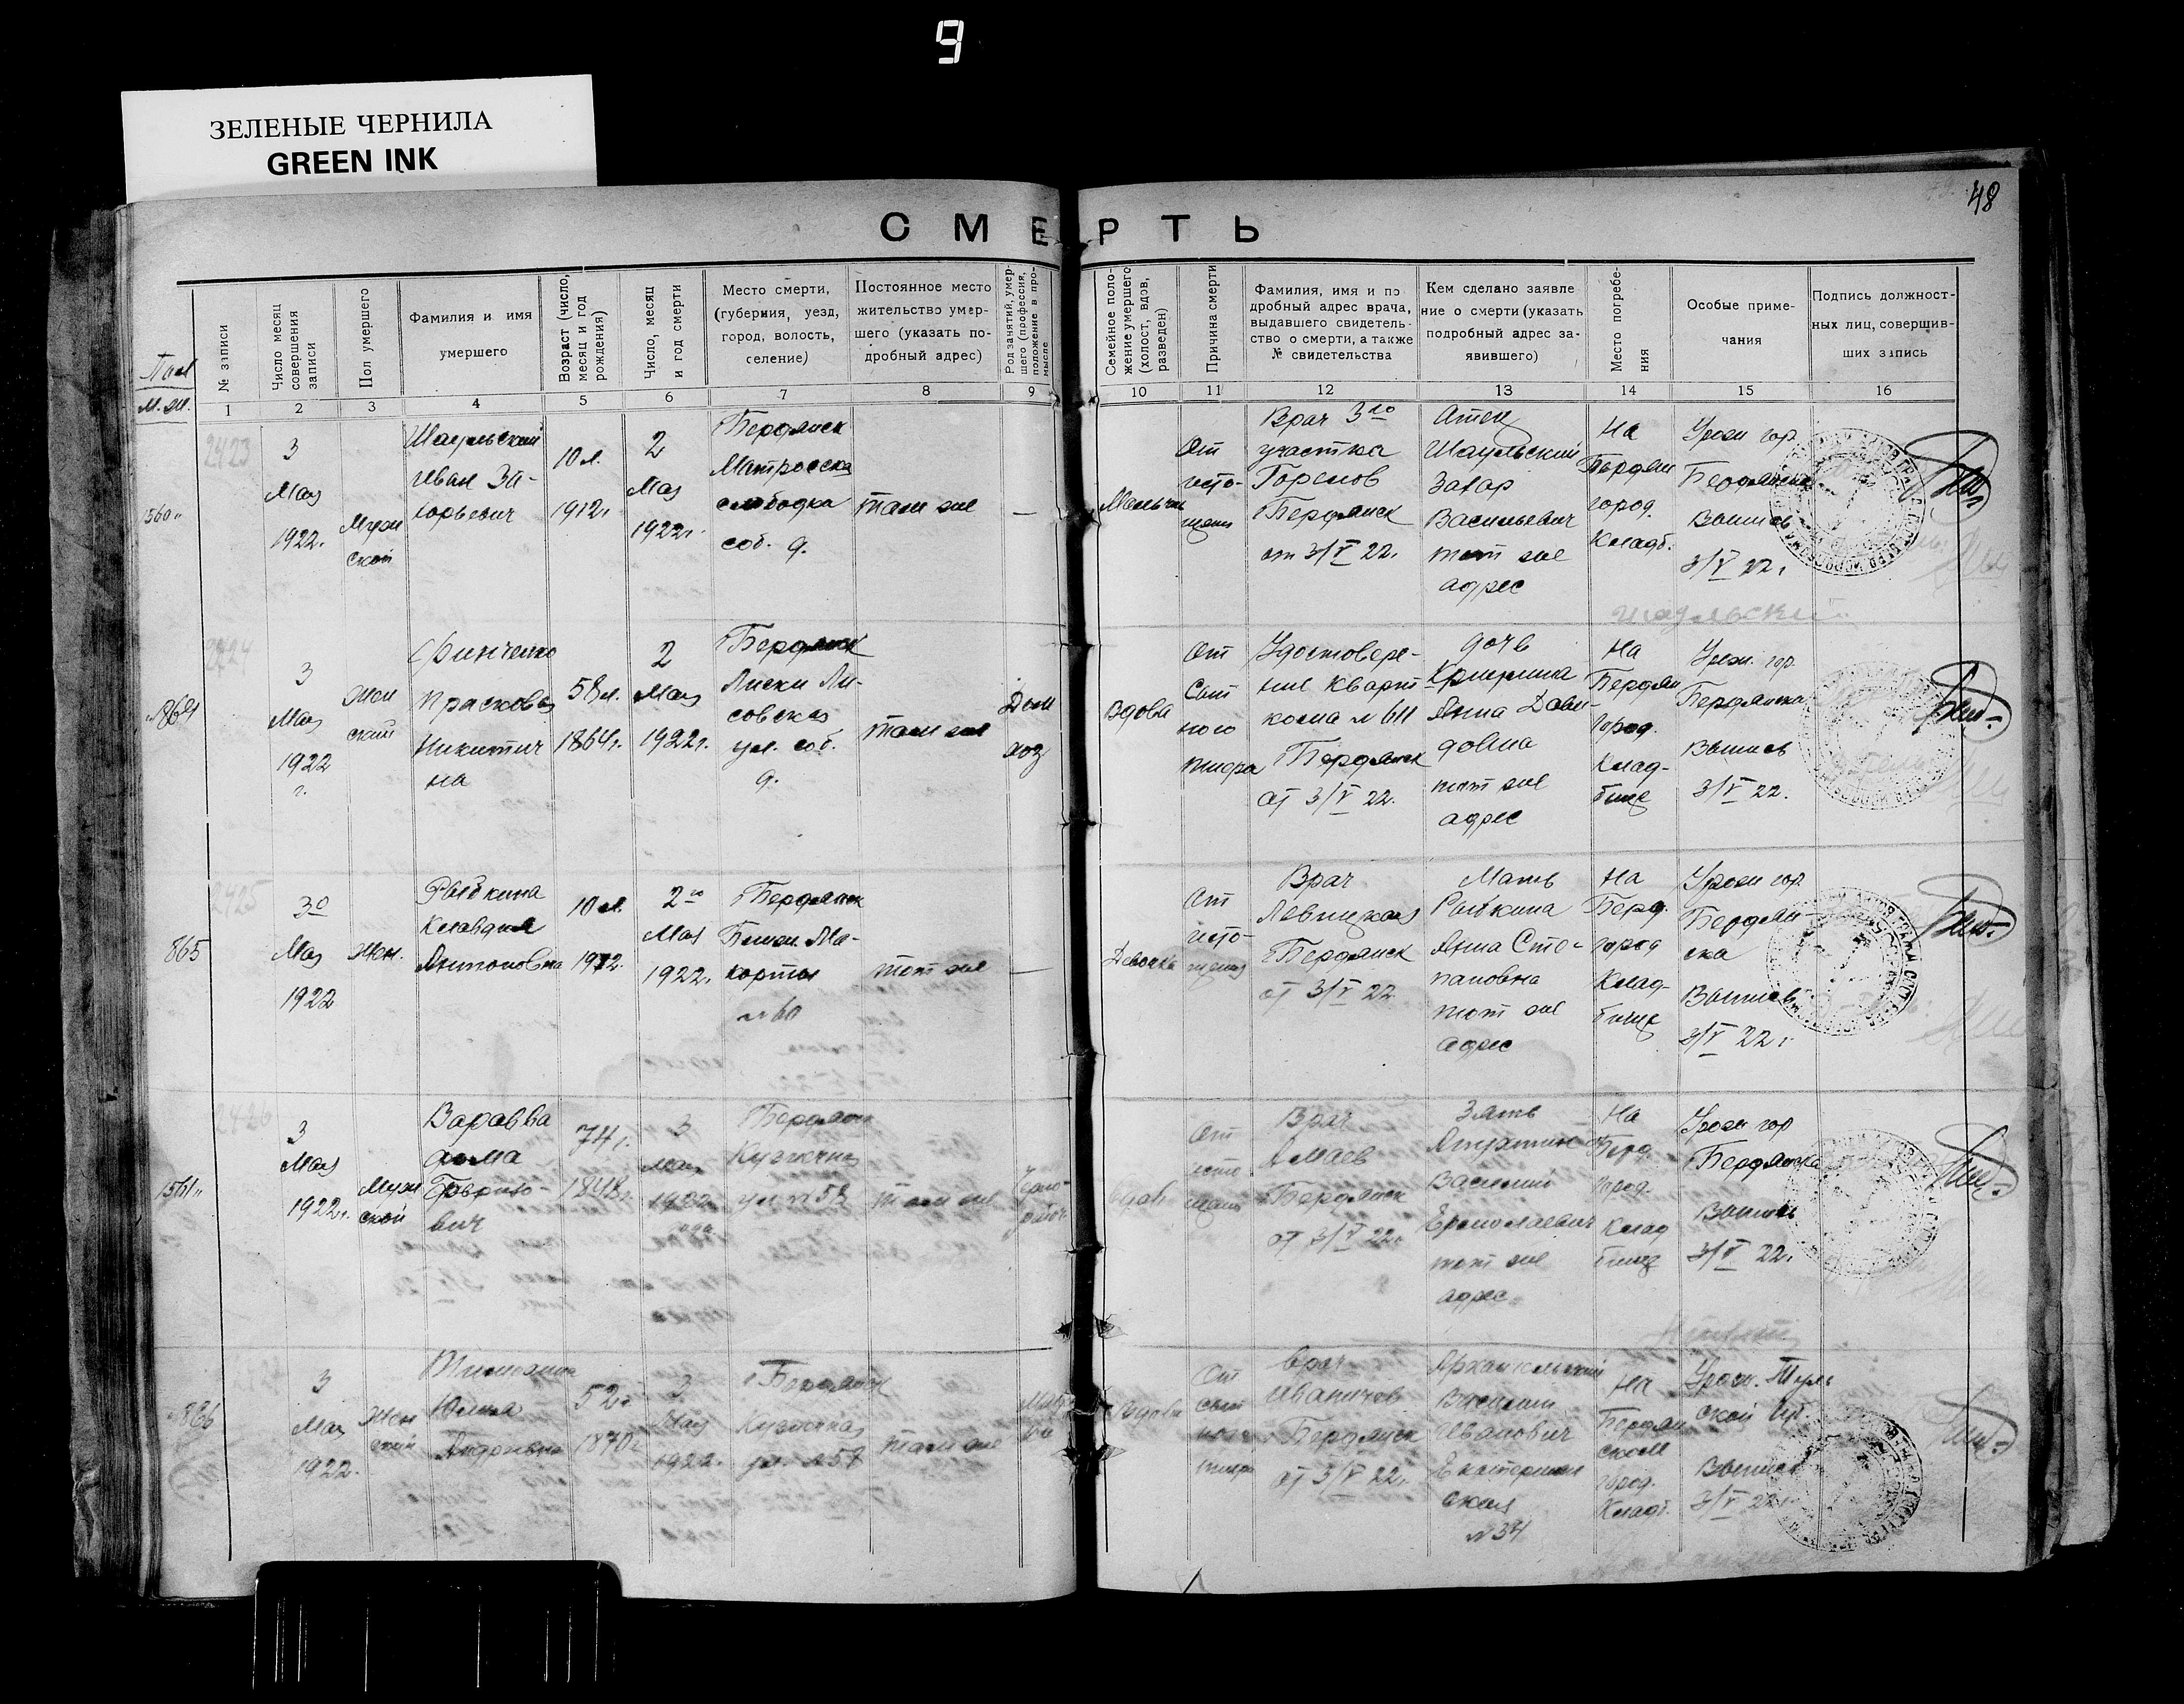 9
ЗЕЛЕНЫЕ ЧЕРНИЛА
GREEN INK
48
СМЕРТЬ
Пол
М. Ж.
№ записи
Число месяц совершения записи
Пол умершего
Фамилия и имя
умершего
Возраст (число, месяц и год рождения)
Число, месяц и год смерти
Место смерти,
(губерния, уезд,
город, волость,
селение)
Постоянное место
жительство умер-
шего (указать по-
дробный адрес)
Род занятий, умер-
шего (профессия,
положение в про-
мысле
Семейное поло-
жение умершего
(холост, вдов,
разведен)
Причина смерти
Фамилия, имя и по
дробный адрес врача,
выдавшего свидетель-
ство о смерти, а также
№ свидетельства
Кем сделано заявле
ние о смерти (указать
подробный адрес за-
явившего)
Место погребе-
ния
Особые приме-
чания
Подпись должност-
ных лиц, совершив-
ших запись
1 2 3 4 5 6 7 8 9 10 11 12 13 14 15 16
2423
1560
3
Мая
1922.
Муж
ской
Шаульский
Иван За-
харьевич
10 л.
1912 г
2
Мая
1922 г.
Бердянск
Матросская
слободка
соб. д.
там же
—
Мальчик
От
исто-
щения
Врач 3го
участка
Горенов
Бердянск
от 3/V 22.
Отец
Шаульский
Захар
Васильевич
тот же
адрес
На
Бердян
город.
Кладб.
Урож гор.
Бердянска
Выпись
3/V 22 г
Шаульский
2424
864
3
Мая
1922
г.
Жен
ский
Прасковья
Никитич
на
58 л.
1864 г.
2
Мая
1922 г.
Бердянск
Лиски Ли-
совская
ул. соб.
д.
там же
Дом
хоз
Вдова
От
Сып
ного
тифа
Удостовере-
ние Кварт
кома № 611
Бердянск
от 3/V 22.
дочь
Анна Дави-
довна
тот же
адрес
На
Бердян
город.
Клад-
бище
Урож. гор.
Бердянска
Выпись
3/V 22.
2425
865
3го
Мая
1922
Жен.
Рыбкина
Клавдия
Антоновна
10 л.
1912.
2го
Мая
1922 г.
Бердянск
Ма-
корты
№ 60
тот же
—
Девочка
От
исто-
щения
Врач
Левицкая
Бердянск
от 3/V 22
Мать
Рыбкина
Анна Сте-
пановна
тот же
адрес
На
Берд.
город
Клад-
бище
Урож гор.
Бердян-
ска
Выпись
3/V 22 г
2426
1561
3
Мая
1922 г.
Муж
ской
Варавва
Фома
Гаврило-
вич
74 г.
1848 г.
3
Мая
1922
года
Бердянск
Кузнечная
ул № 58
там же
Черно-
рабоч.
Вдов
От
исто
щения
Врач
Амаев
Бердянск
от 3/V 22 г
Зять
Василий
Ермолаевич
тот же
адрес
На
Берд.
город.
Клад
бище
Урож гор
Бердянска
Выпись
3/V 22 г
866
3
Мая
1922.
Жен
ский
52 г
1870 г
3
Мая
1922.
Бердянск
Кузнечная
ул. № 57
там же
Вдова
От
сып
ного
тифа
Врач
Иваничев
Бердянск
от 3/V 22 г.
Архангельский
Василий
Иванович
Екатеринин
ская
№ 34
На
Бердян
ском
город.
Кладб.
Урож. Туль
ской губ.
Выпись
3/V 22 г